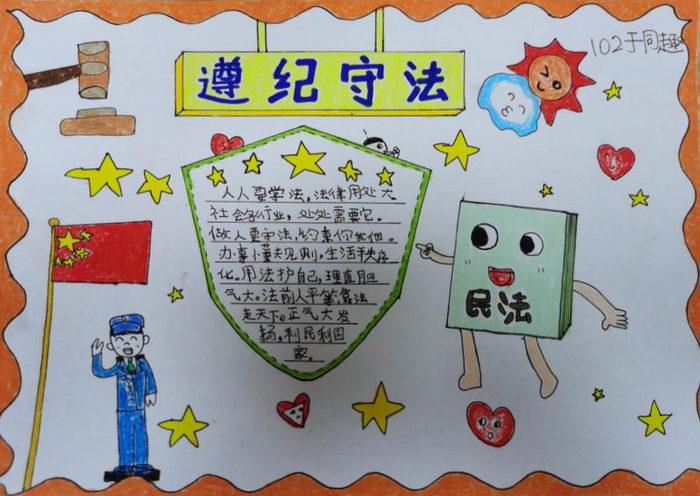 遵纪守法
102于同趣
人人要学法,法律用处大
社会各行业,处处需要它。
做人要守法,约束你我他。
办事懂规则,生活秩序
化。用法护自己,理直胆
气大。法前人平等,靠法
走天下。正气大发
扬,利民利国
家。
民法